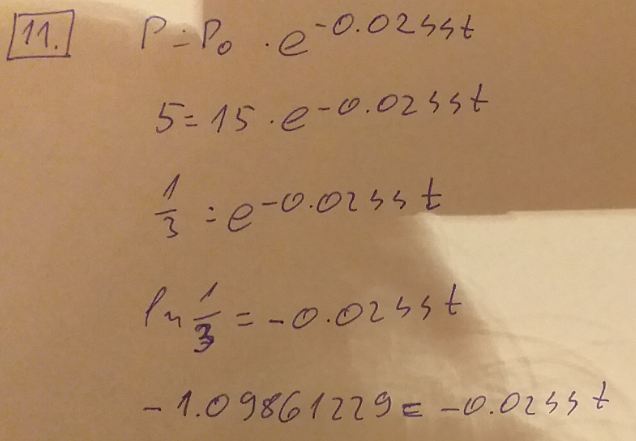 11. P = P₀ · e^-0.0244t
5 = 15 · e^-0.0244t
1/3 = e^-0.0244t
ln 1/3 = -0.0244t
-1.09861229 = -0.0244t